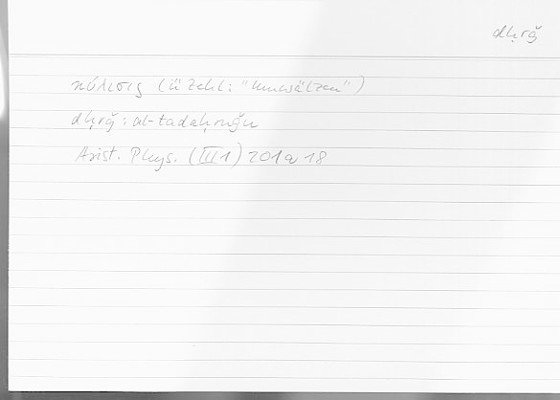 dḥrǧ
κύλισις (ü Zekl: "Umwälzen")
dḥrǧ: at-tadaḥruǧu
Arist. Phys. (III 1) 201a 18